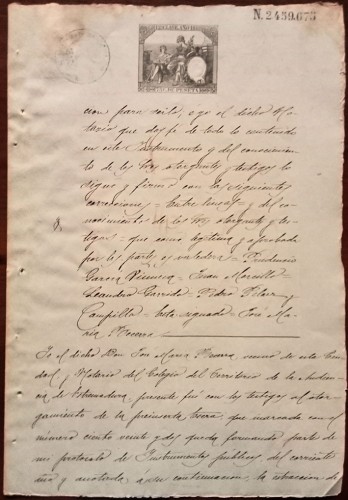 N. 2459.675
cion para serlo, e yo el dicho No-
tario que doy fé de todo lo contenido
en este Instrumento y del conocimien-
to de los tres otorgantes y testigos lo
signo y firmo con las siguientes
correcciones = Entre lineas = y del co-
nocimiento de los tres otorgantes y tes-
tigos = que como legitima y aprobada
por las partes es valedera = Prudencio
Garcia = Juan Morcillo =
Leandro Garrido = Pedro Pelaez
Campillo = Esta signado = José Ma-
ria
Yo el dicho Don José Maria vecino de esta Ciu-
dad, y Notario del Colegio del Territorio de la Audien-
cia de Estremadura, presente fui con los testigos al otor-
gamiento de la preinserta Escra, que marcada con el
número ciento veinte y dos queda formando parte de
mi protocolo de Instrumentos publicos, del corriente
año y anotada a su continuacion, la estraccion de